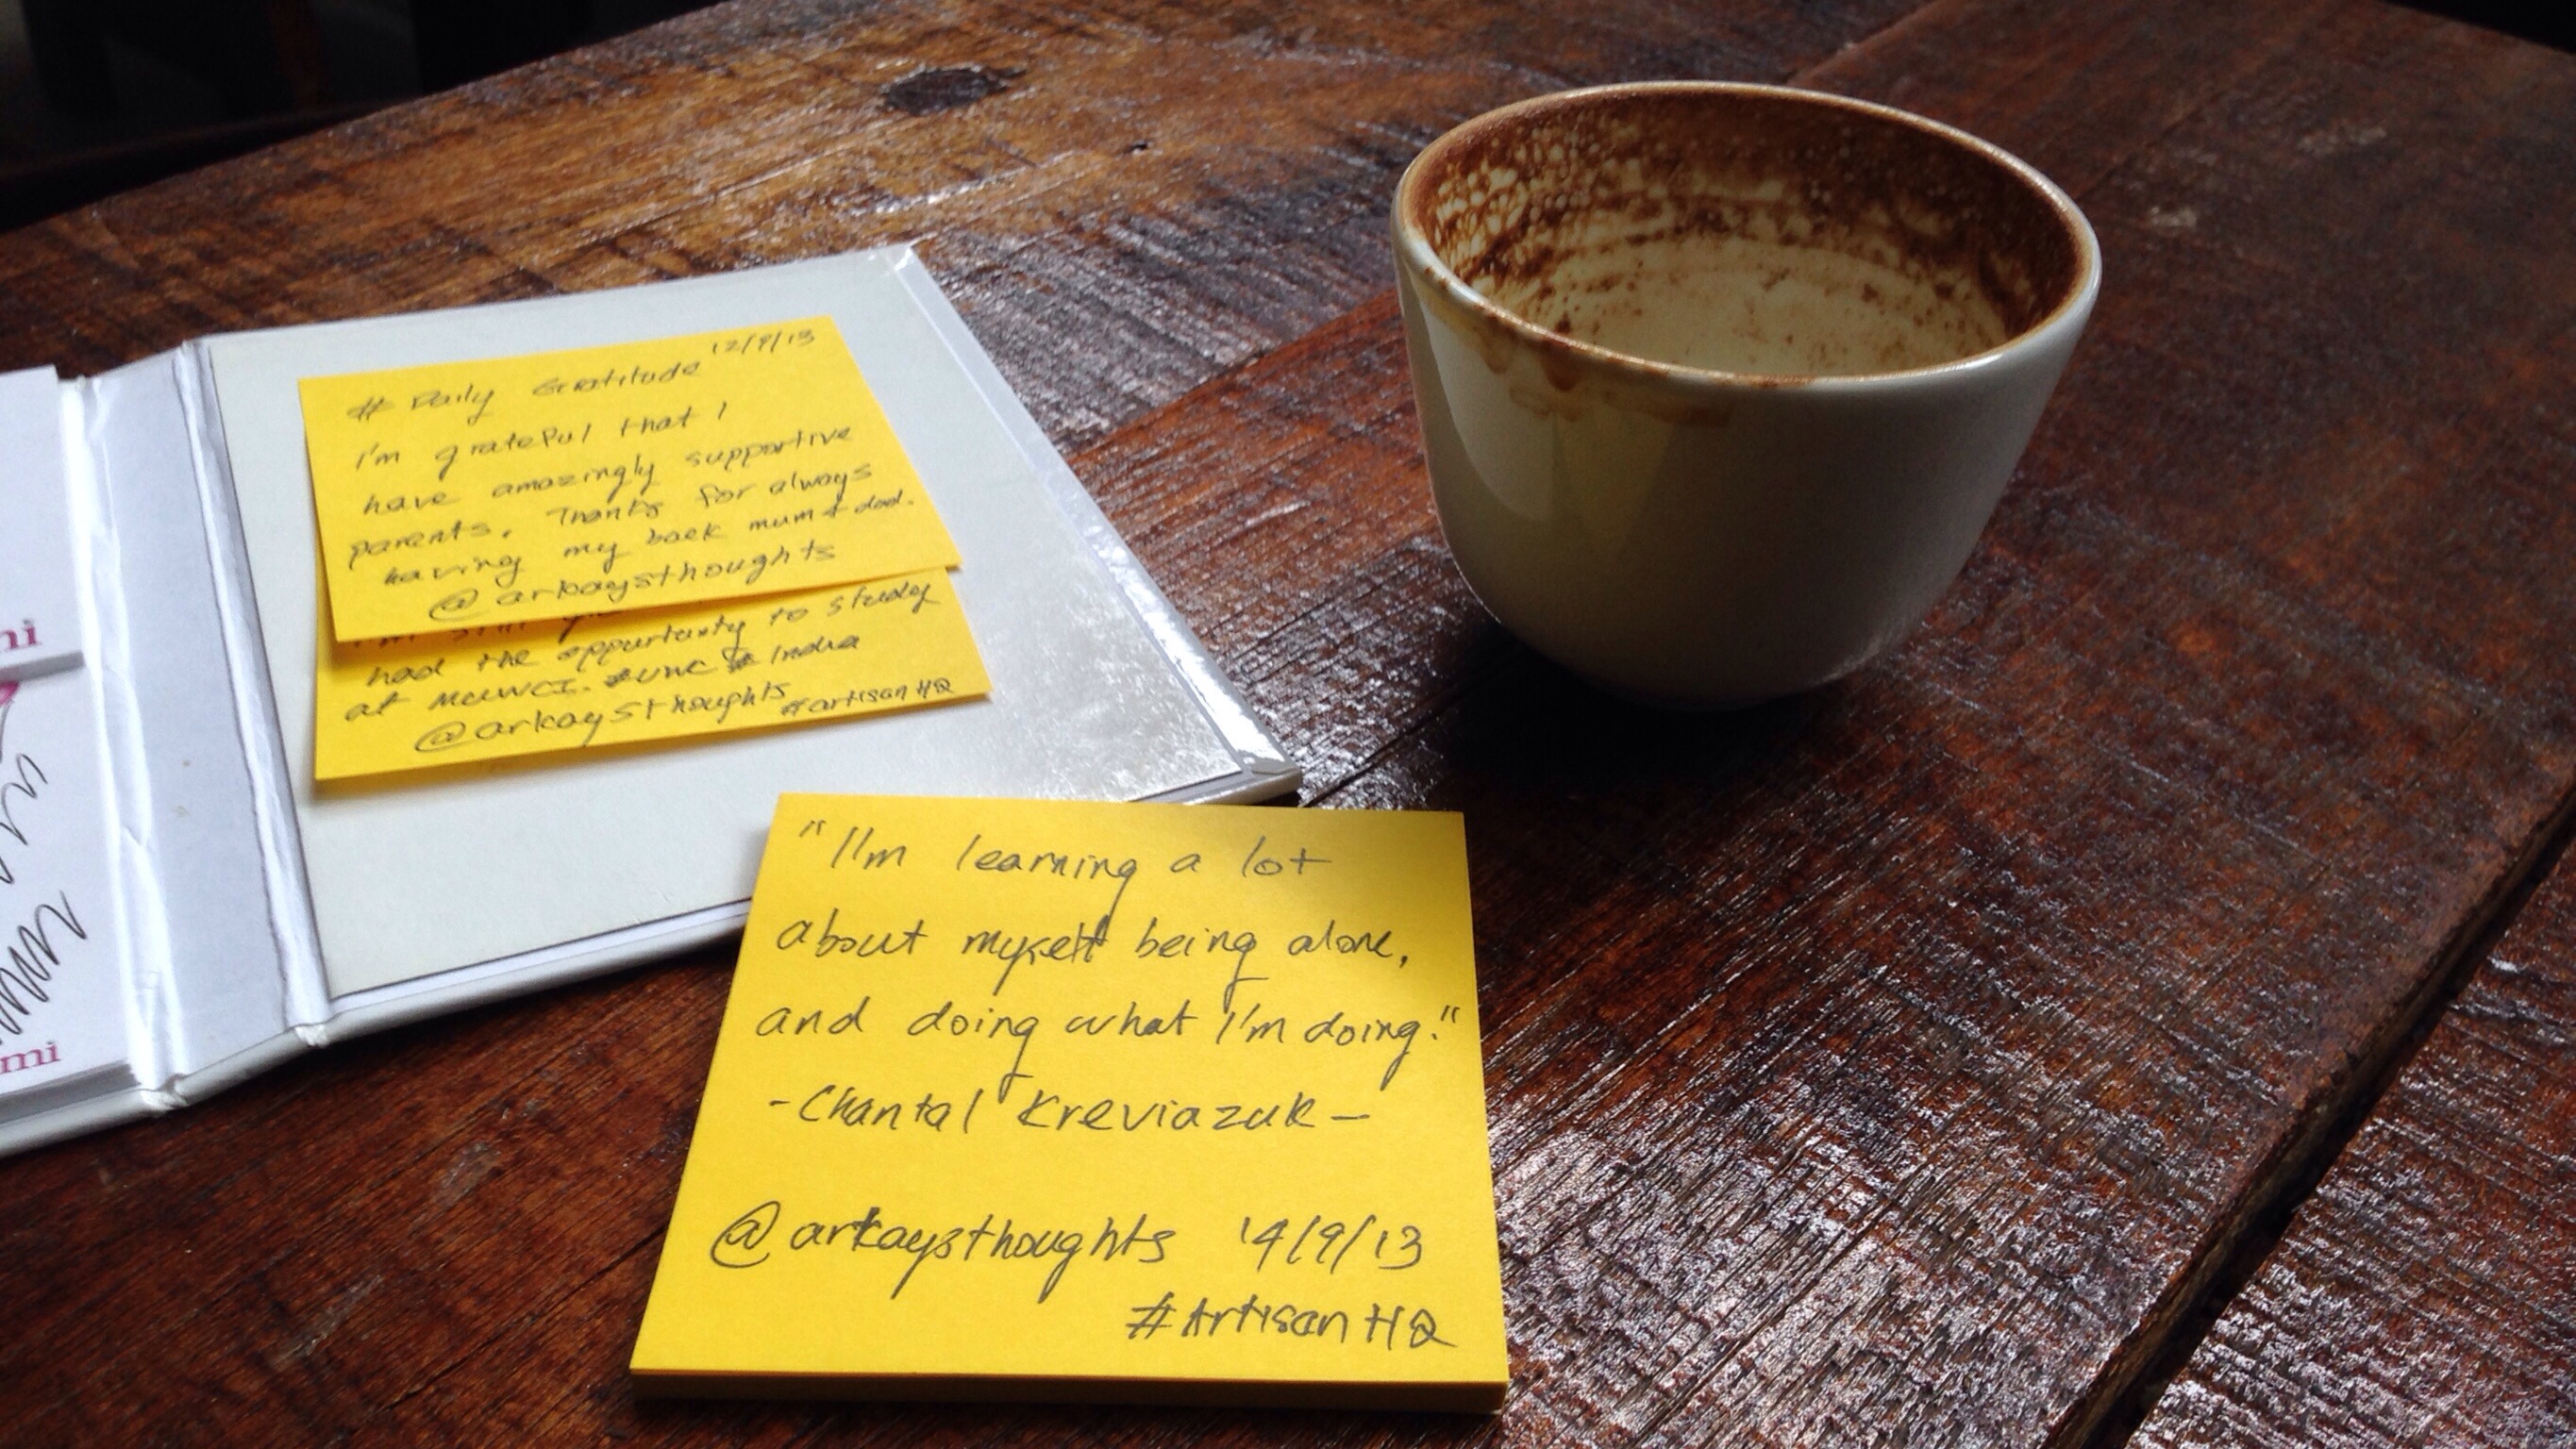 # Daily Gratitude 12/9/13
I'm grateful that I
have amazingly supportive
parents. Thanks for always
having my back mum & dad.
@arkaysthoughts
I'm still
had the oppurtunity to study
at MUWCI. #UWC # India
@arkaysthoughts #artisanHQ
"I'm learning a lot
about myself being alone,
and doing what I'm doing."
- Chantal Kreviazuk -
@arkaysthoughts 14/9/13
#ArtisanHQ
ni
mi